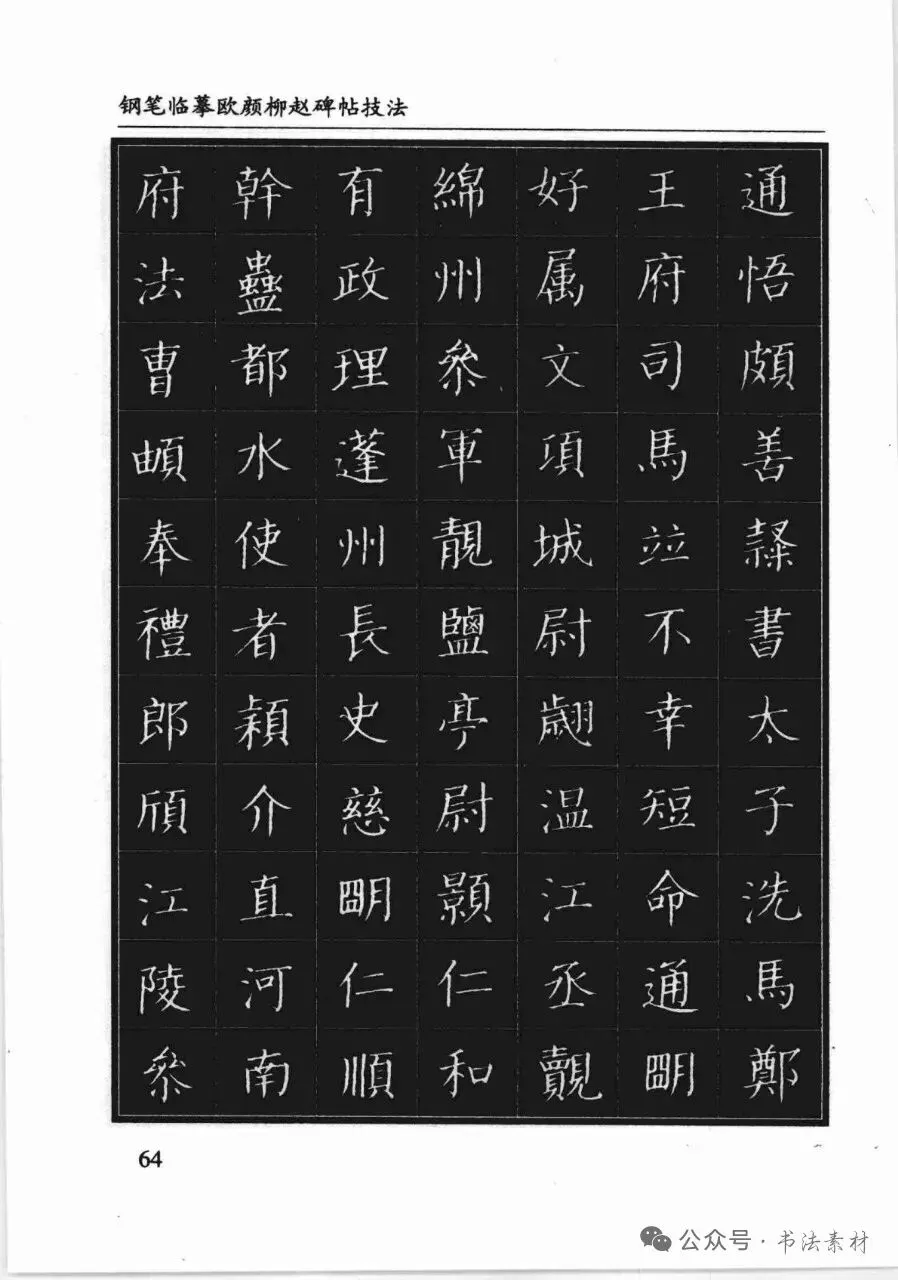 钢笔临摹欧颜柳赵碑帖技法
通悟頗善隸書太子洗馬鄭
王府司馬竝不幸短命通朙
好属文項城尉翽温江丞覿
綿州叅軍靚鹽亭尉顥仁和
有政理蓬州長史慈朙仁順
幹蠱都水使者穎介直河南
府法曹頔奉禮郎頎江陵叅
64
公众号·书法素材